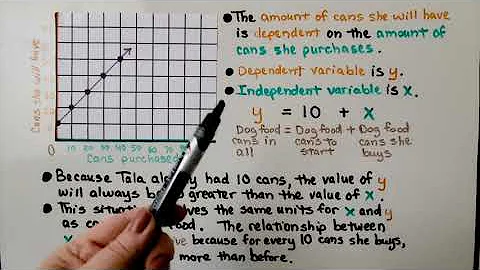 The amount of cans she will have
is dependent on the amount of
cans she purchases.
Dependent variable is y.
Independent variable is x.
y = 10 + x
Dog food = Dog food + Dog food
cans in cans to cans she
all start buys
Cans she will have
0 10 20 30 40 50
Cans purchased
Because Tala had 10 cans, the value of y
will always be greater than the value of x.
This the same units for x and y
as The relationship between
x because for every 10 cans she buys,
more than before.